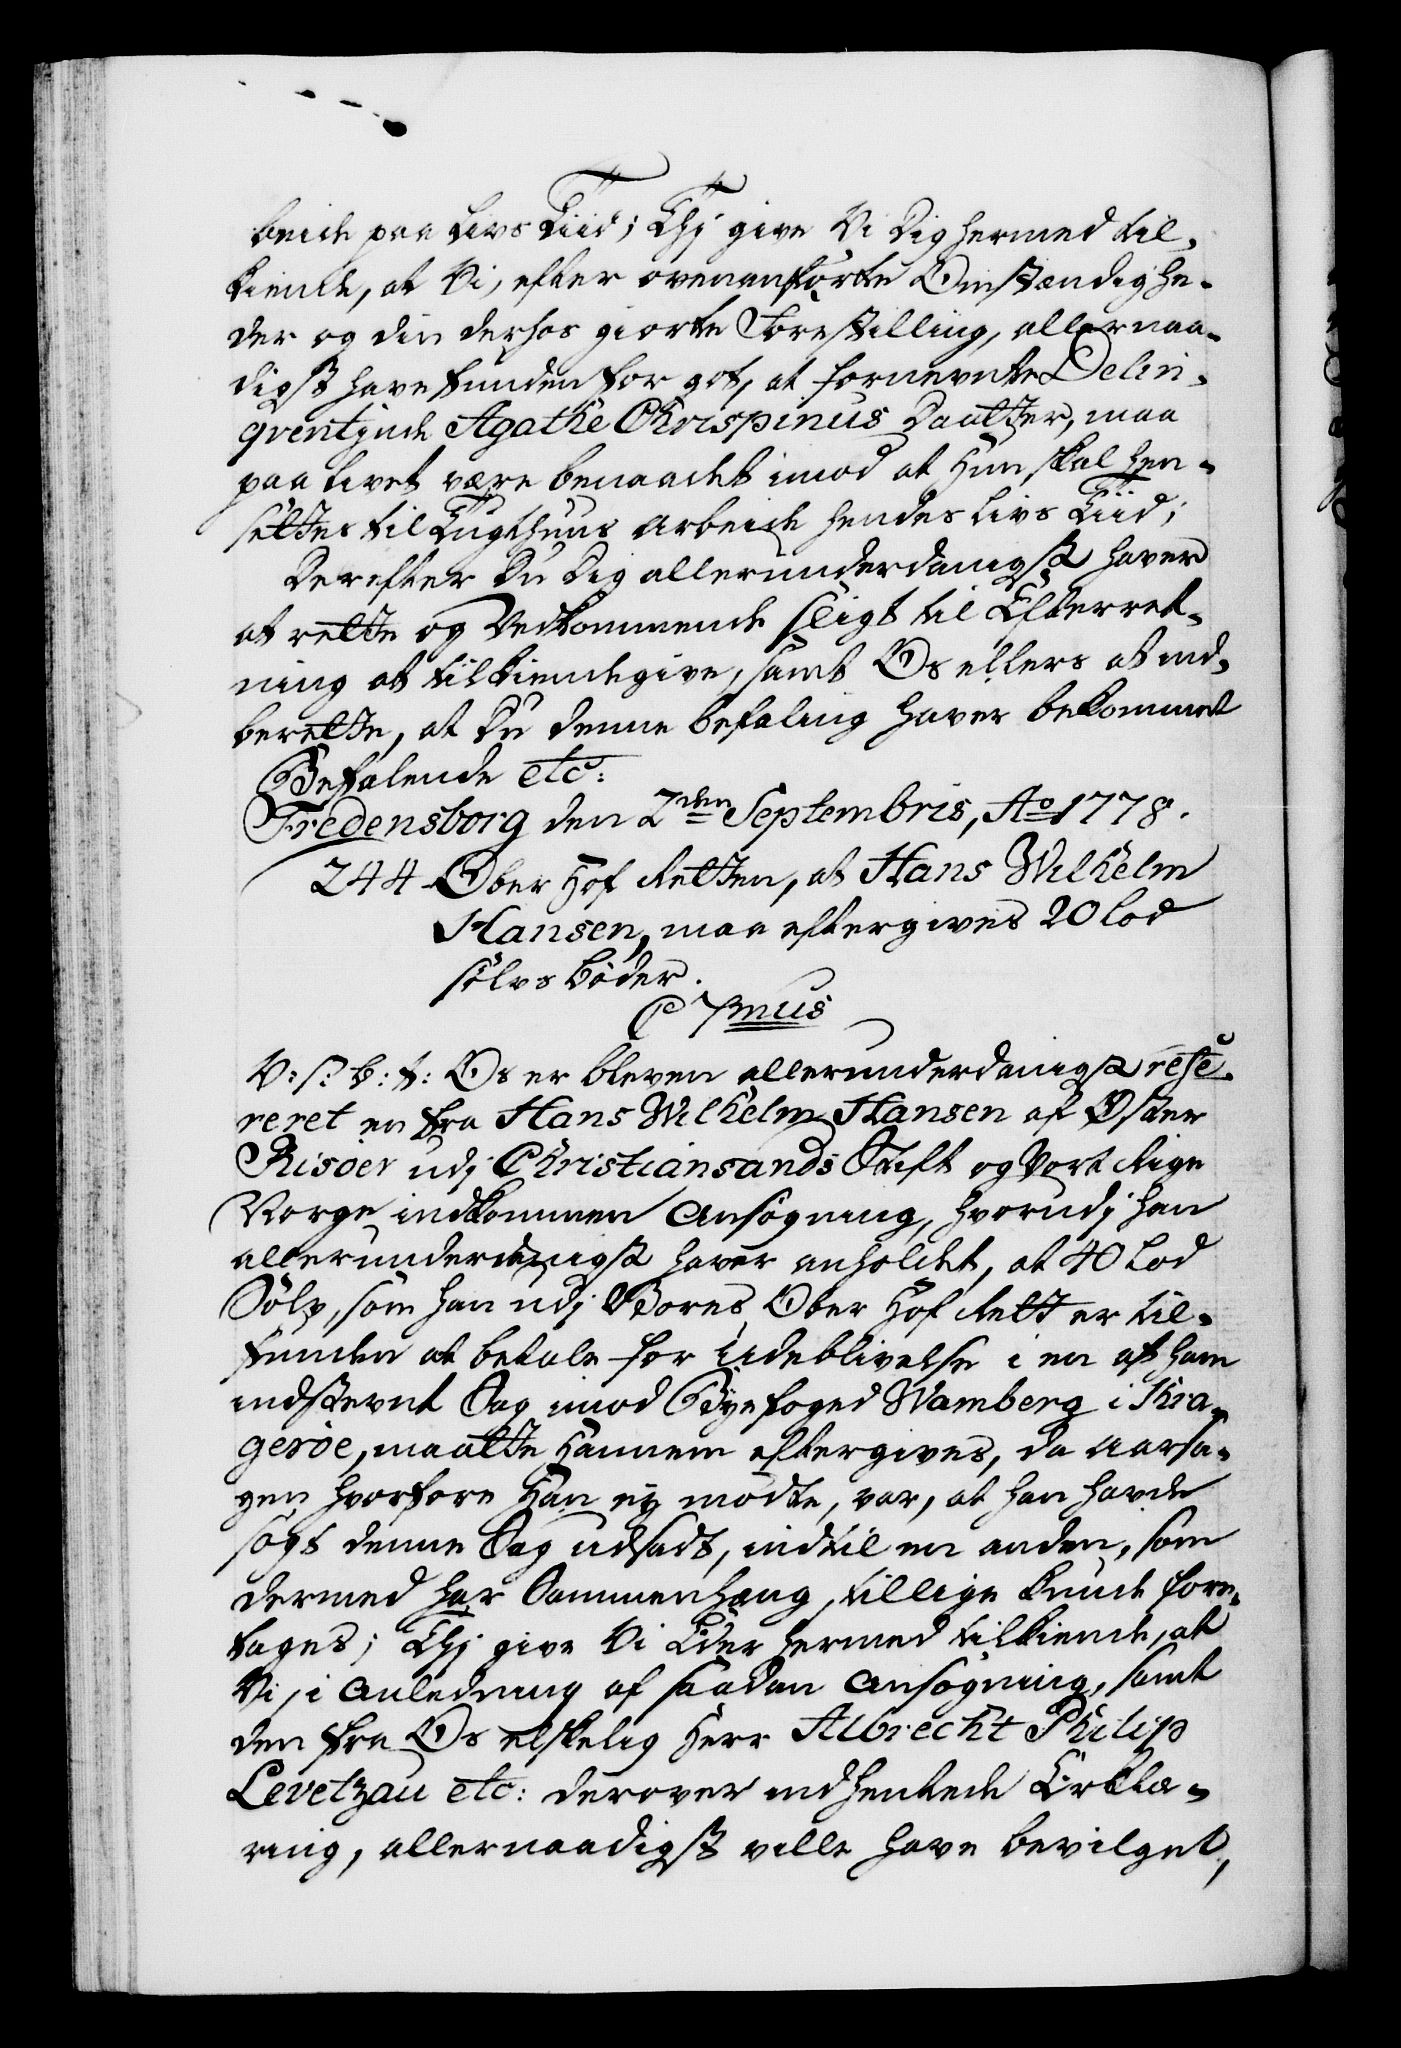 beide paa Livs Tiid; Thj give Vi Dig hermed til-
kiende, at Vi, efter ovenanførte Omstændighe-
der og din derhos giorte Forestilling, allernaa-
digst have funden for got, at fornevnte Delin-
qventinde Agathe Chrispinus Daatter, maa
paa Livet være benaadet imod at Hun skal hen-
settes til Tugthuus Arbeide hendes Livs Tiid;
Derefter Du Dig allerunderdanigst haver
at rette og Vedkommende sligt til Efterret-
ning at tilkiendegive, samt Os ellers at ind-
berette, at Du denne befaling haver bekommet
Befalende etc:
Fredensborg den 2den Septembris, Ao 1778.
244 Ober Hof Retten, at Hans Wilhelm
Hansen, maa eftergives 20 Lod
sølvs bøder.
C 7mus
V: S: B: T: Os er bleven allerunderdanigst refe-
reret en fra Hans Wilhelm Hansen af Øster
Risøer udj Christiansands Stift og Vort Rige
Norge indkommen Ansøgning, hvorudj han
allerunderdanigst haver anholdet, at 40 Lod
Sølv, som han udj Vores Ober Hof Rett er til-
funden at betale for Udeblivelse i en af ham
indstevnt Sag imod Byefoged Wamberg i Kra-
gerøe, maatte Hannem eftergives, da Aarsa-
gen hvorfore Han ey mødte, var, at han havde
søgt denne Sag udsadt, indtil en anden, som
dermed har Sammenhæng, tillige kunde fore-
tages; Thj give Vi Eder hermed tilkiende, at
Vi, i Anledning af saadan Ansøgning, samt
den fra Os elskelig Herr Albrecht Philip
Levetzau etc: derover indhentede Erklæ-
ring, allernaadigst ville have bevilget,